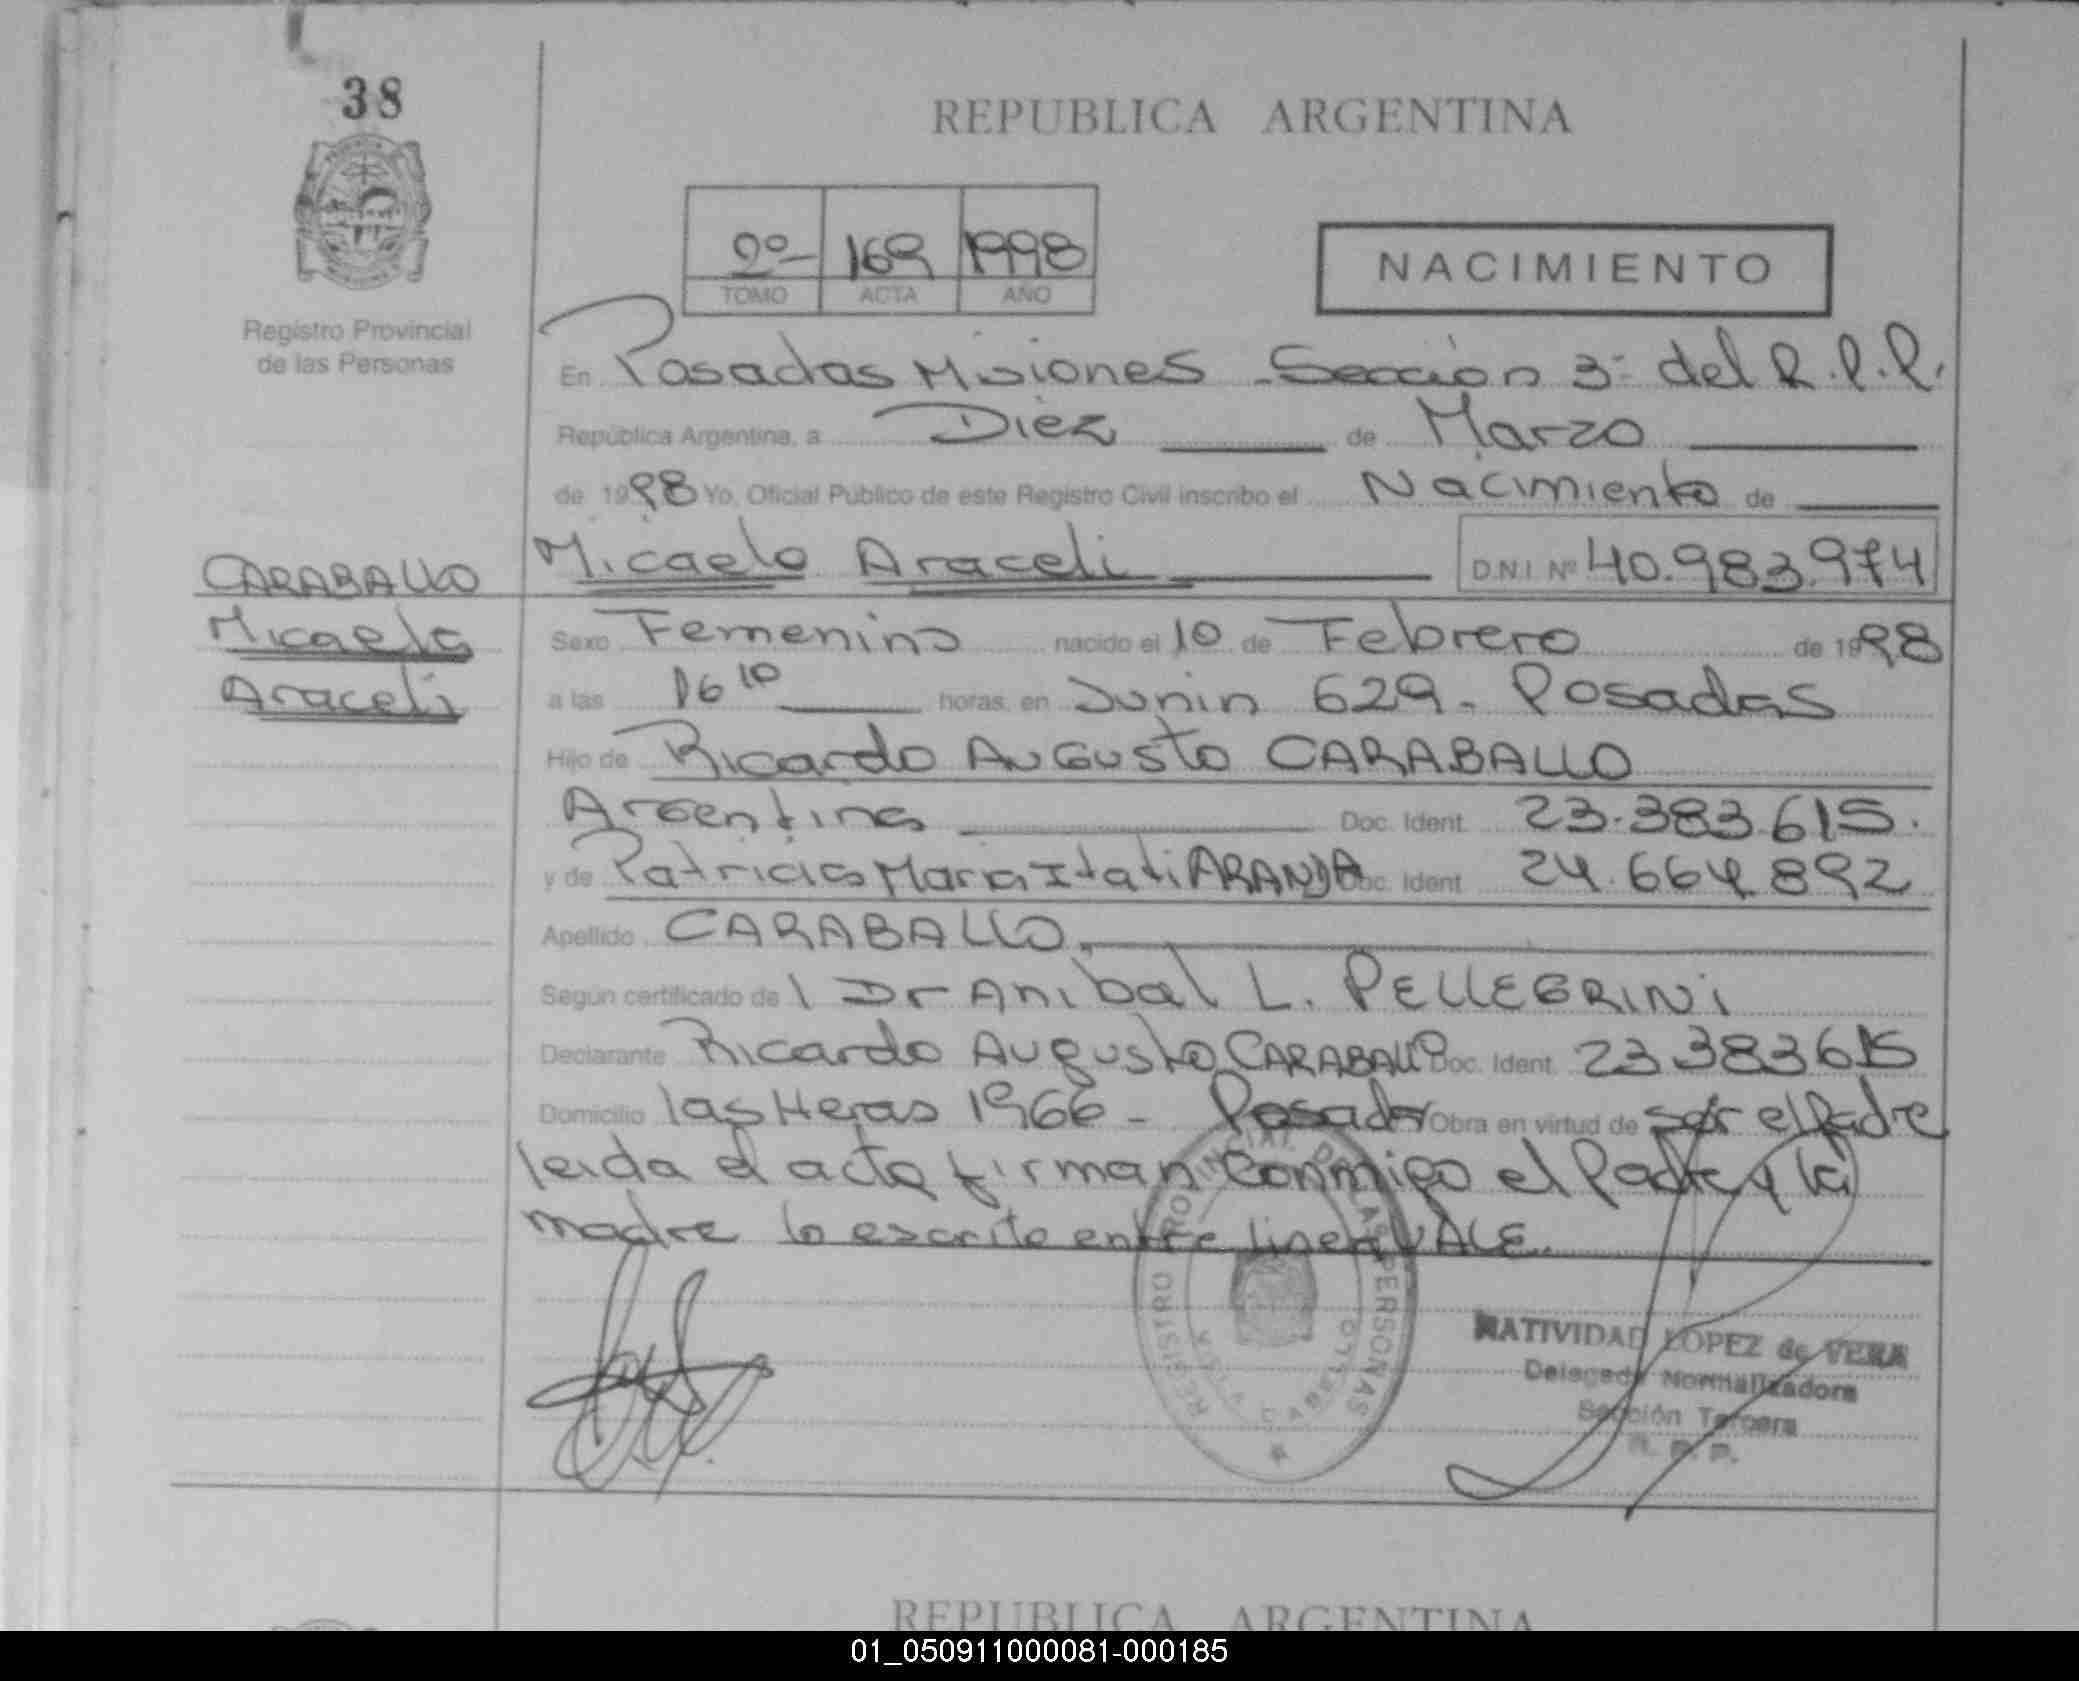 38
REPUBLICA ARGENTINA
2º 169 1998
TOMO ACTA AÑO
NACIMIENTO
Registro Provincial
de las Personas
En Posadas Misiones - Sección 3ª del R.P.P.
República Argentina, a Diez de Marzo
de 1998 Yo, Oficial Público de este Registro Civil inscribo el Nacimiento de
CARABALLO Micaela Araceli D.N.I. Nº 40.983.974
Micaela Sexo Femenino nacido el 10 de Febrero de 1998
Araceli a las 16 10 horas, en Junin 629 - Posadas
Hijo de Ricardo Augusto CARABALLO
Argentina Doc. Ident. 23.383.615.
y de Patricia Maria Itati ARANDA Doc. Ident. 24.664.892
Apellido CARABALLO.
Según certificado de l Dr Anibal L. PELLEGRINI
Declarante Ricardo Augusto CARABALLO Doc. Ident. 23383615
Domicilio las Heras 1966 - Posadas Obra en virtud de ser el Padre
leida el acta firman conmigo el Padre y la
madre lo escrito entre linea VALE.
REGISTRO PROVINCIAL DE LAS PERSONAS
NATIVIDAD LOPEZ de VERA
Delegada Normalizadora
Sección Tercera
R. P. P.
REPUBLICA ARGENTINA
01_050911000081-000185